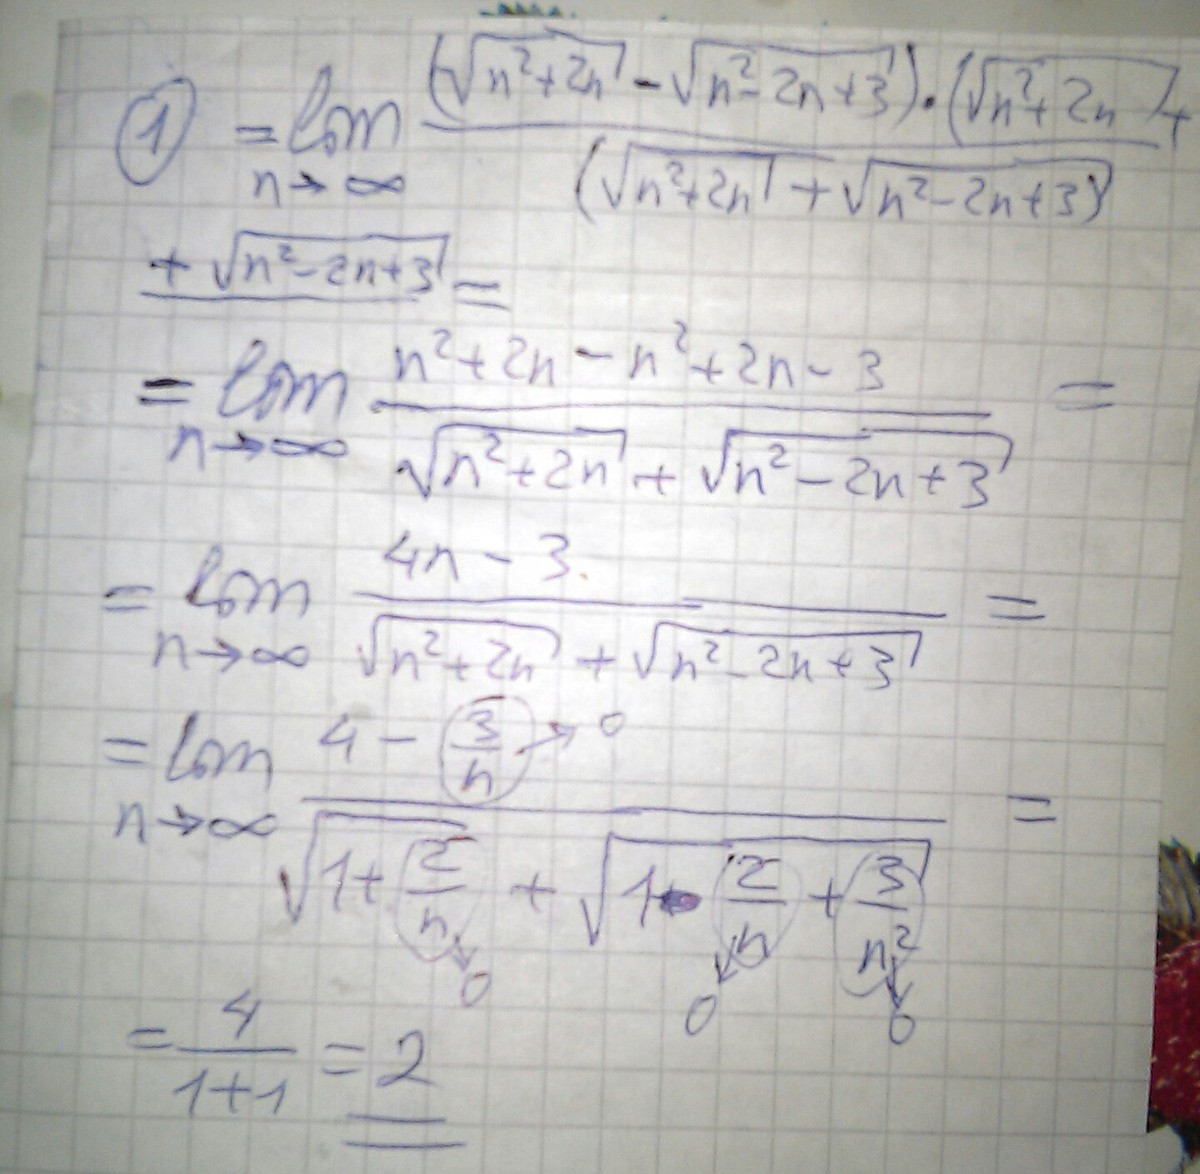 ① = lim n→∞ ((√(n²+2n) - √(n²-2n+3)) · (√(n²+2n) +
(√(n²+2n) + √(n²-2n+3))
+ √(n²-2n+3) =
= lim n→∞ (n²+2n - n²+2n - 3) / (√(n²+2n) + √(n²-2n+3)) =
= lim n→∞ (4n - 3) / (√(n²+2n) + √(n²-2n+3)) =
= lim n→∞ (4 - 3/n → 0) / (√(1+2/n → 0) + √(1-2/n → 0 + 3/n² → 0)) =
= 4/(1+1) = 2